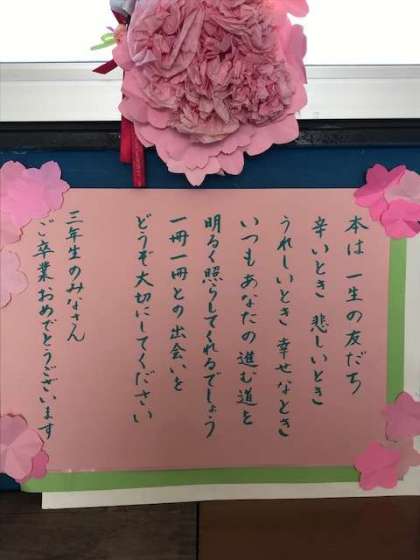 本は一生の友だち
辛いとき 悲しいとき
うれしいとき 幸せなとき
いつもあなたの進む道を
明るく照らしてくれるでしょう
一冊一冊との出会いを
どうぞ大切にしてください
三年生のみなさん
ご卒業おめでとうございます